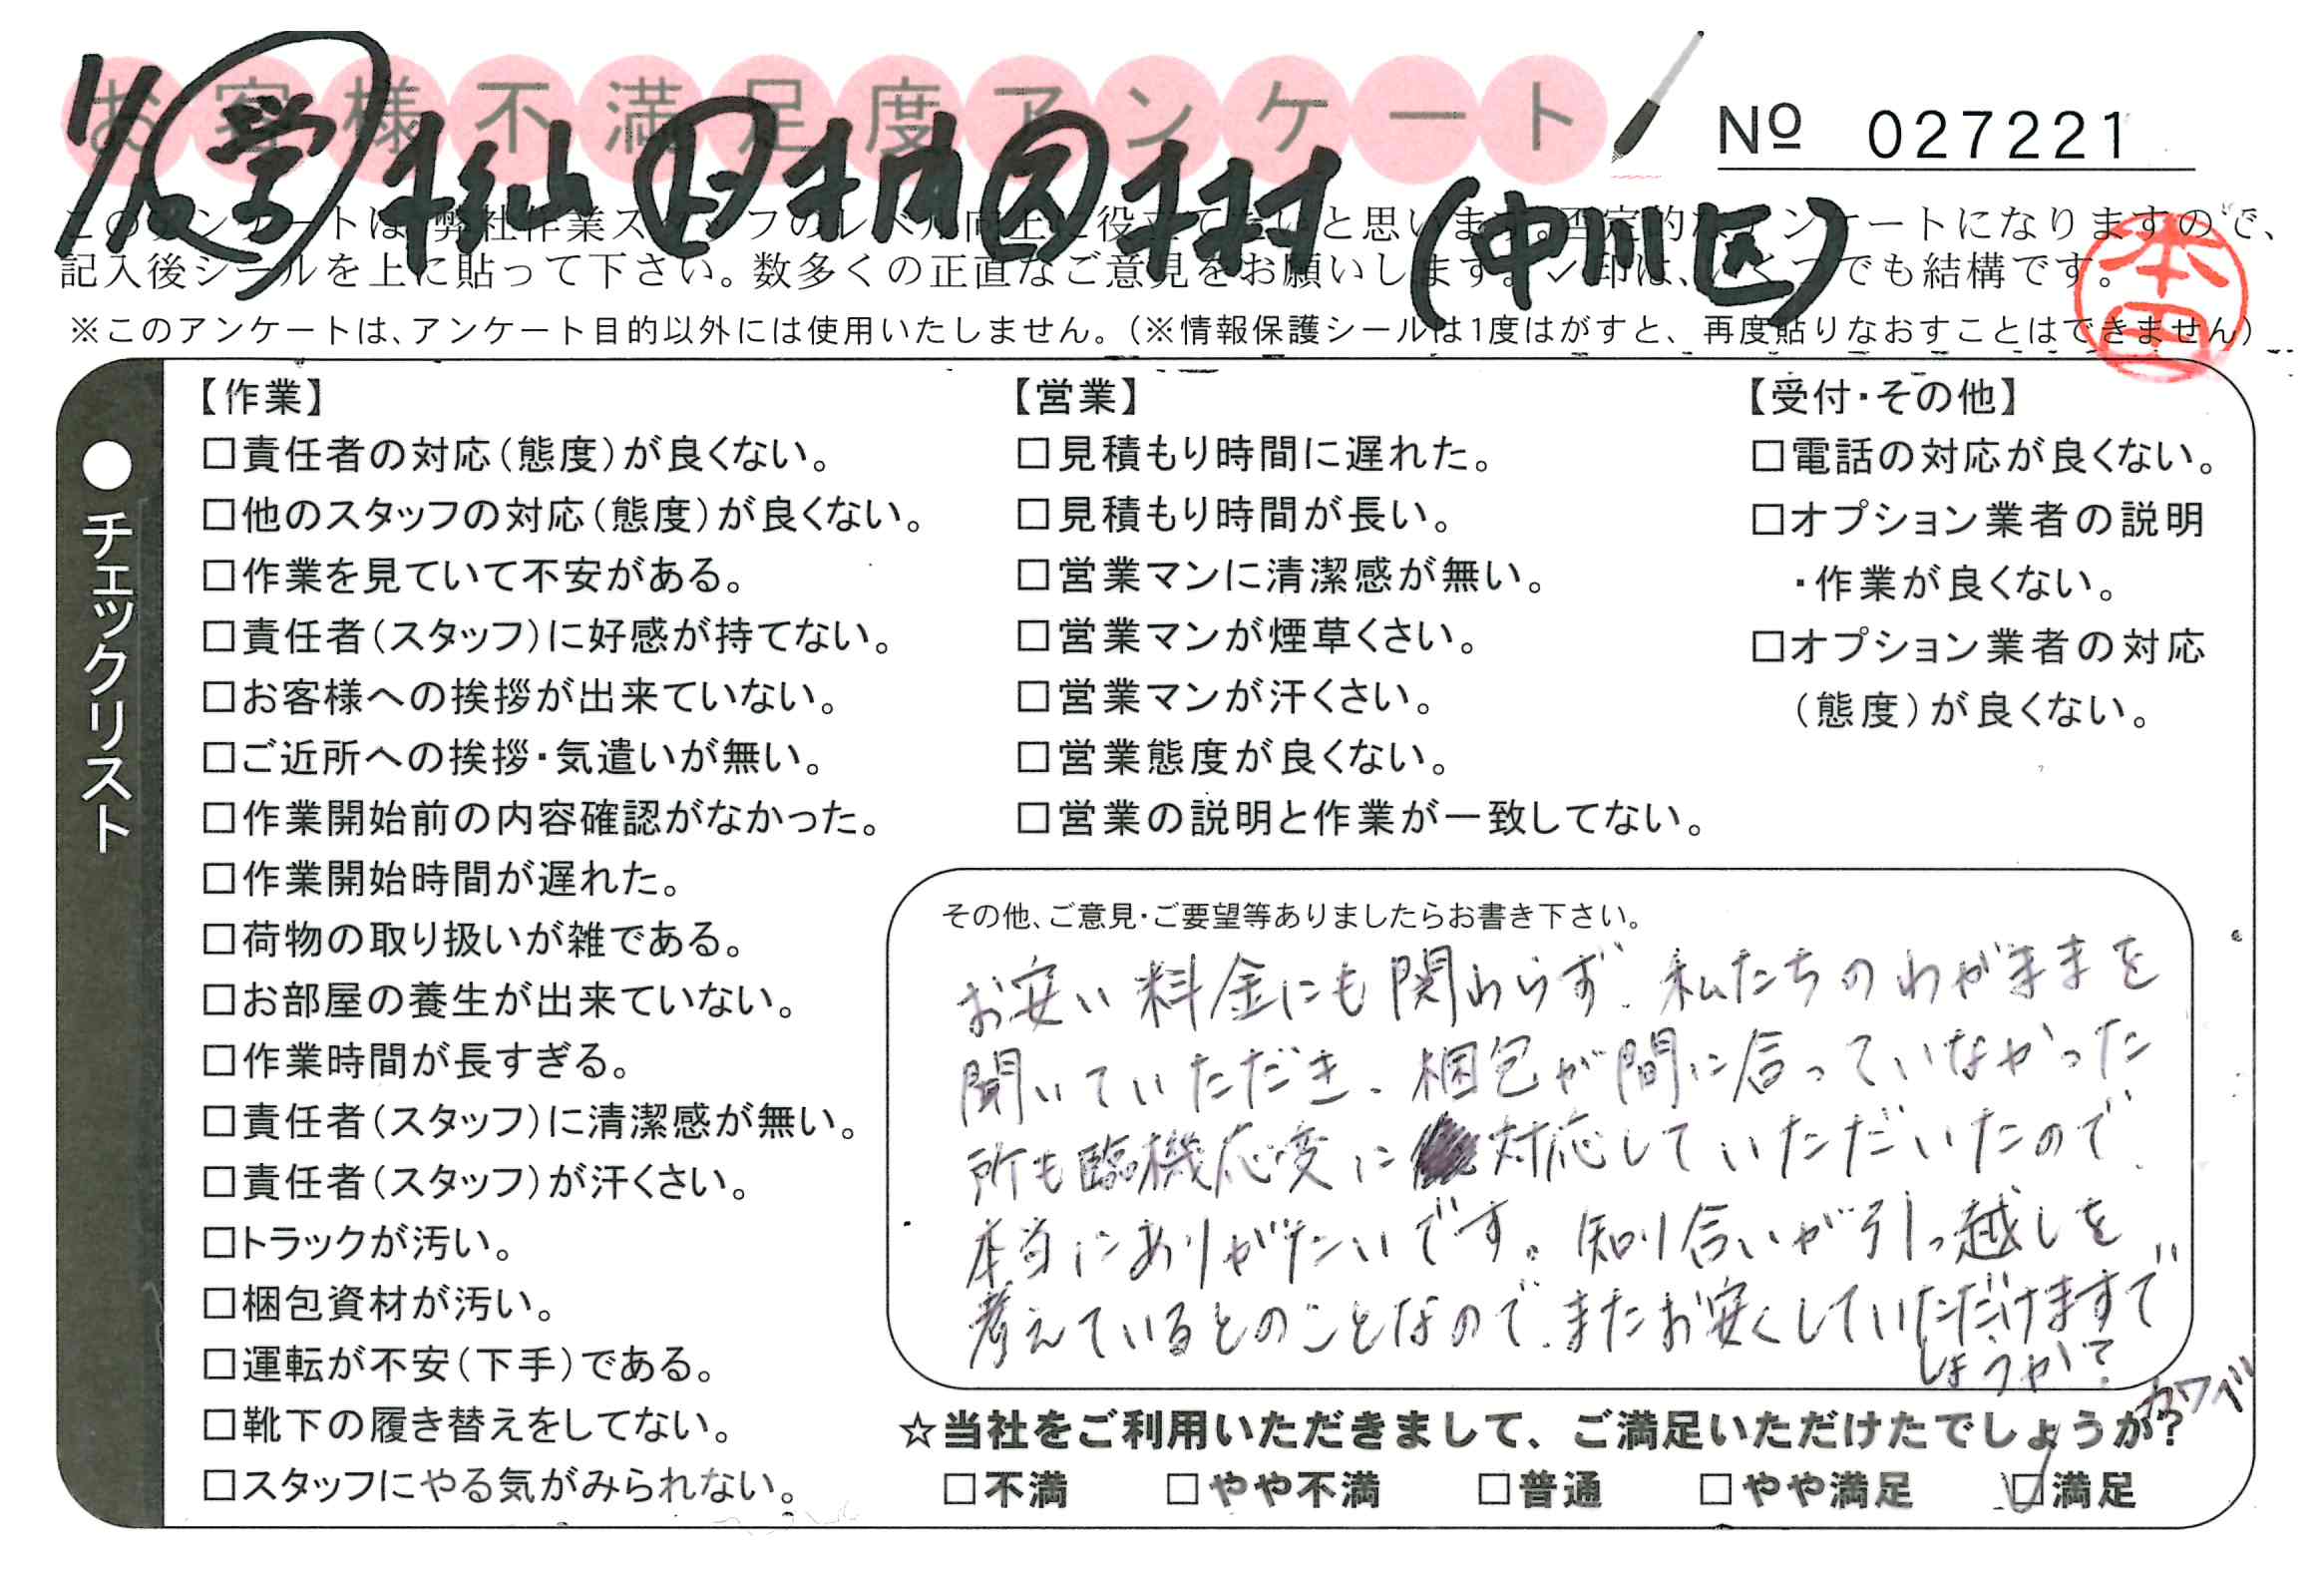 お客様不満足度アンケート
№ 027221
営 杉山 作 木村 (中川区)
このアンケートは、弊社作業スタッフのレベル向上に役立てたいと思います。否定的なアンケートになりますので、
記入後シールを上に貼って下さい。数多くの正直なご意見をお願いします。レ印は、いくつでも結構です。
※このアンケートは、アンケート目的以外には使用いたしません。(※情報保護シールは1度はがすと、再度貼りなおすことはできません)
本田
●チェックリスト
【作業】
□責任者の対応(態度)が良くない。
□他のスタッフの対応(態度)が良くない。
□作業を見ていて不安がある。
□責任者(スタッフ)に好感が持てない。
□お客様への挨拶が出来ていない。
□ご近所への挨拶・気遣いが無い。
□作業開始前の内容確認がなかった。
□作業開始時間が遅れた。
□荷物の取り扱いが雑である。
□お部屋の養生が出来ていない。
□作業時間が長すぎる。
□責任者(スタッフ)に清潔感が無い。
□責任者(スタッフ)が汗くさい。
□トラックが汚い。
□梱包資材が汚い。
□運転が不安(下手)である。
□靴下の履き替えをしてない。
□スタッフにやる気がみられない。
【営業】
□見積もり時間に遅れた。
□見積もり時間が長い。
□営業マンに清潔感が無い。
□営業マンが煙草くさい。
□営業マンが汗くさい。
□営業態度が良くない。
□営業の説明と作業が一致してない。
【受付・その他】
□電話の対応が良くない。
□オプション業者の説明
・作業が良くない。
□オプション業者の対応
(態度)が良くない。
その他、ご意見・ご要望等ありましたらお書き下さい。
お安い料金にも関わらず、私たちのわがままを
聞いていただき、梱包が間に合っていなかった
所も臨機応変に対応していただいたので、
本当にありがたいです。知り合いが引っ越しを
考えているとのことなので、またお安くしていただけますで
しょうか?
カワベ
☆当社をご利用いただきまして、ご満足いただけたでしょうか?
□不満 □やや不満 □普通 □やや満足 ☑満足